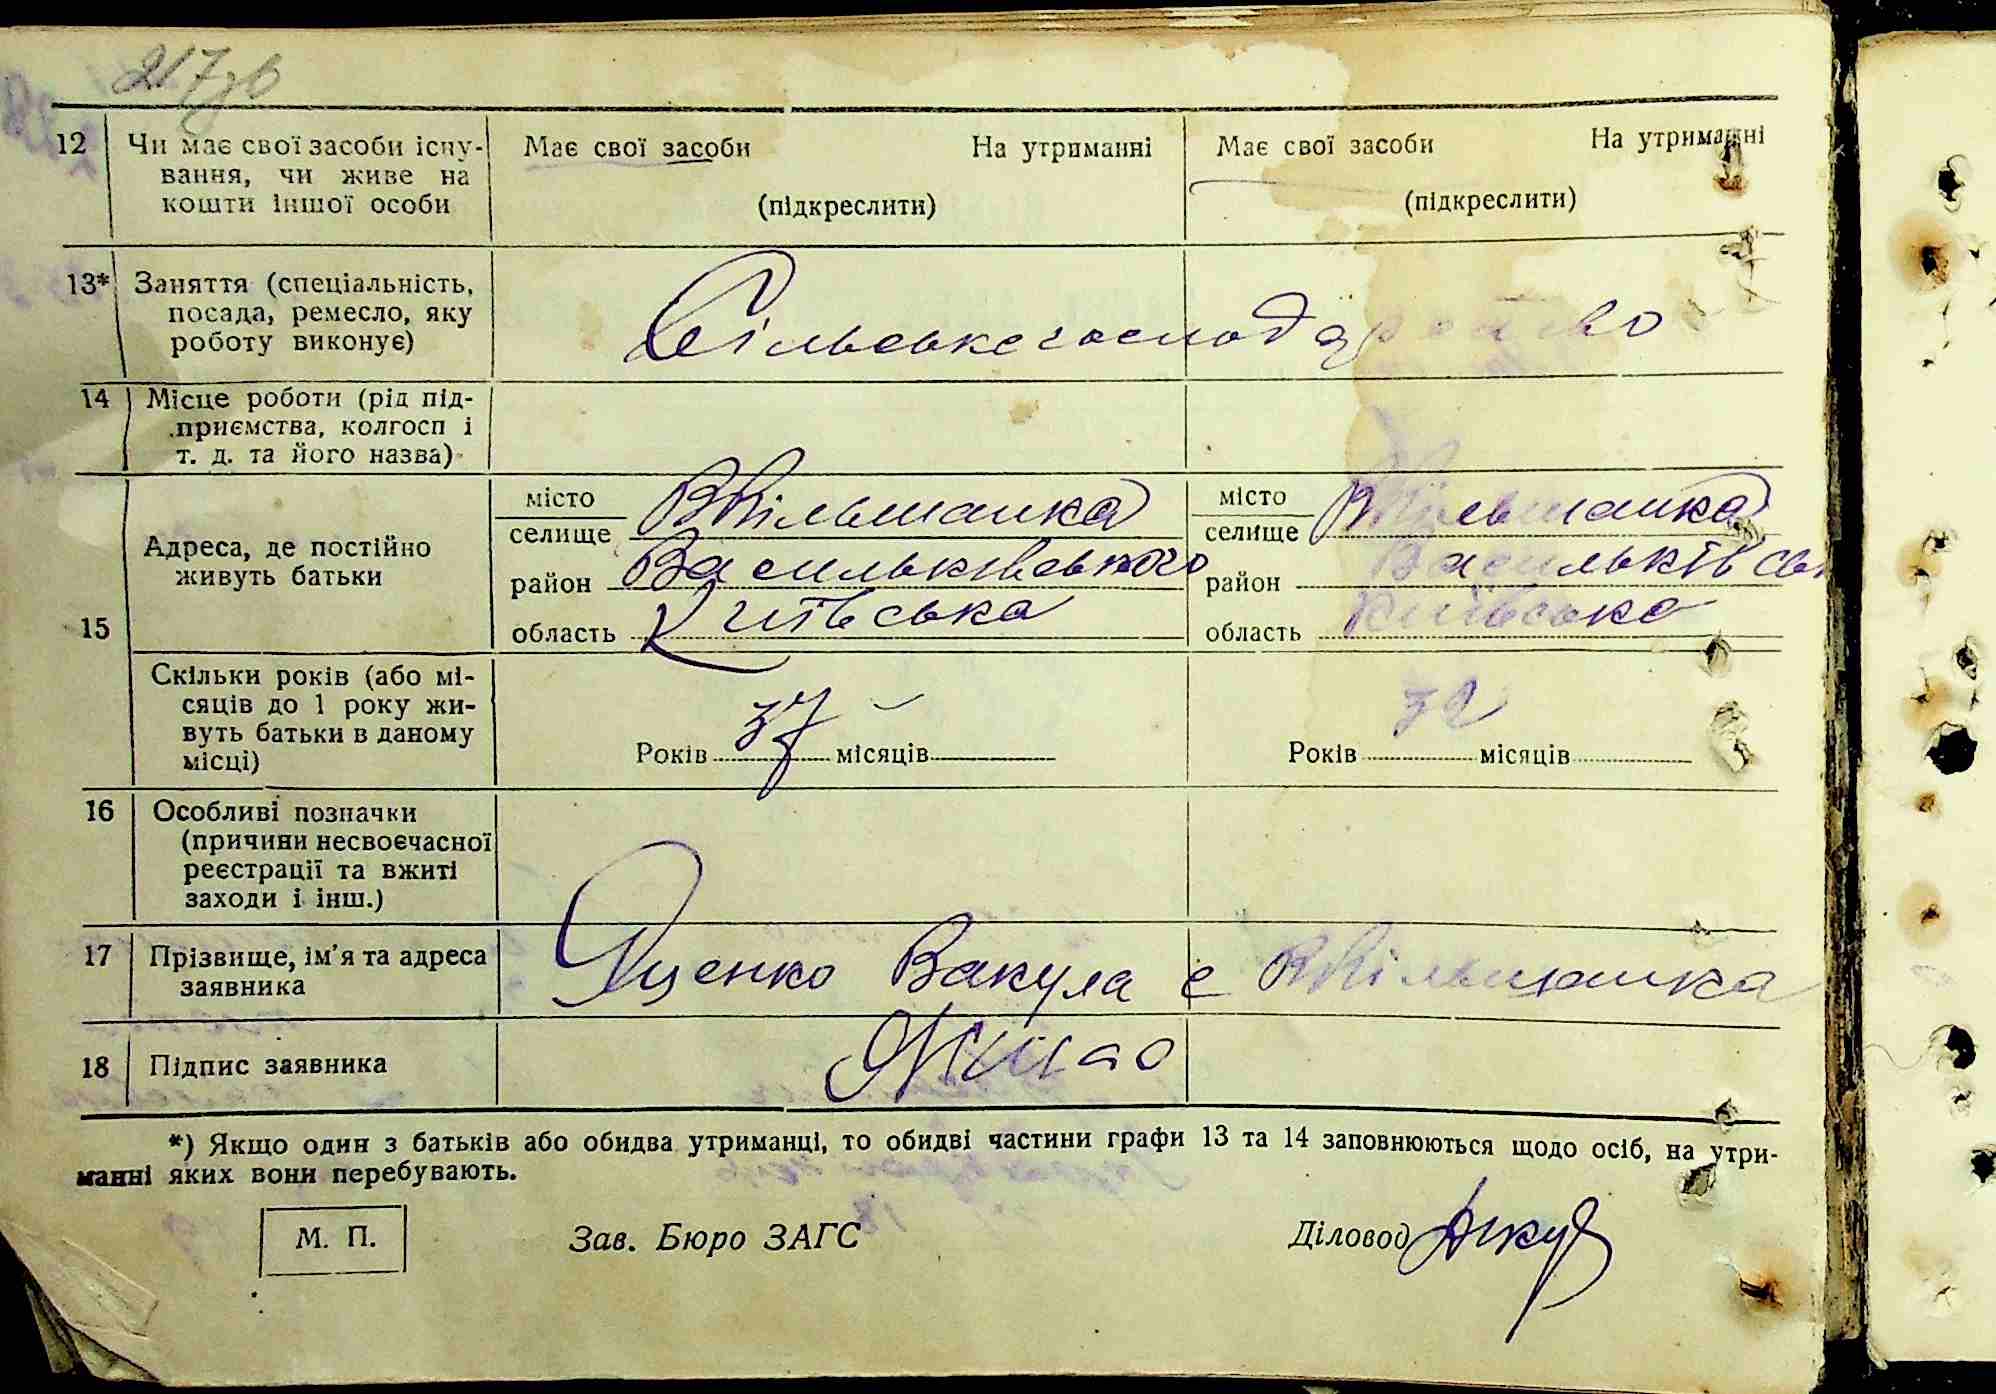 217зв
12 Чи має свої засоби існу-
вання, чи живе на
кошти іншої особи
Має свої засоби На утриманні
(підкреслити)
Має свої засоби На утриманні
(підкреслити)
13* Заняття (спеціальність,
посада, ремесло, яку
роботу виконує)
Сільське господарство
14 Місце роботи (рід під-
приємства, колгосп і
т. д. та його назва)
15
Адреса, де постійно
живуть батьки
місто
селище ВВільшанка
район Васильківського
область Київська
місто
селище ВВільшанка
район Васильківськ
область Київська
Скільки років (або мі-
сяців до 1 року жи-
вуть батьки в даному
місці)
Років 37 місяців
Років 32 місяців
16 Особливі позначки
(причини несвоєчасної
реєстрації та вжиті
заходи і інш.)
17 Прізвище, ім'я та адреса
заявника
Яценко Вакула с ВВільшанка
18 Підпис заявника
*) Якщо один з батьків або обидва утриманці, то обидві частини графи 13 та 14 заповнюються щодо осіб, на утри-
манні яких вони перебувають.
М. П.
Зав. Бюро ЗАГС
Діловод